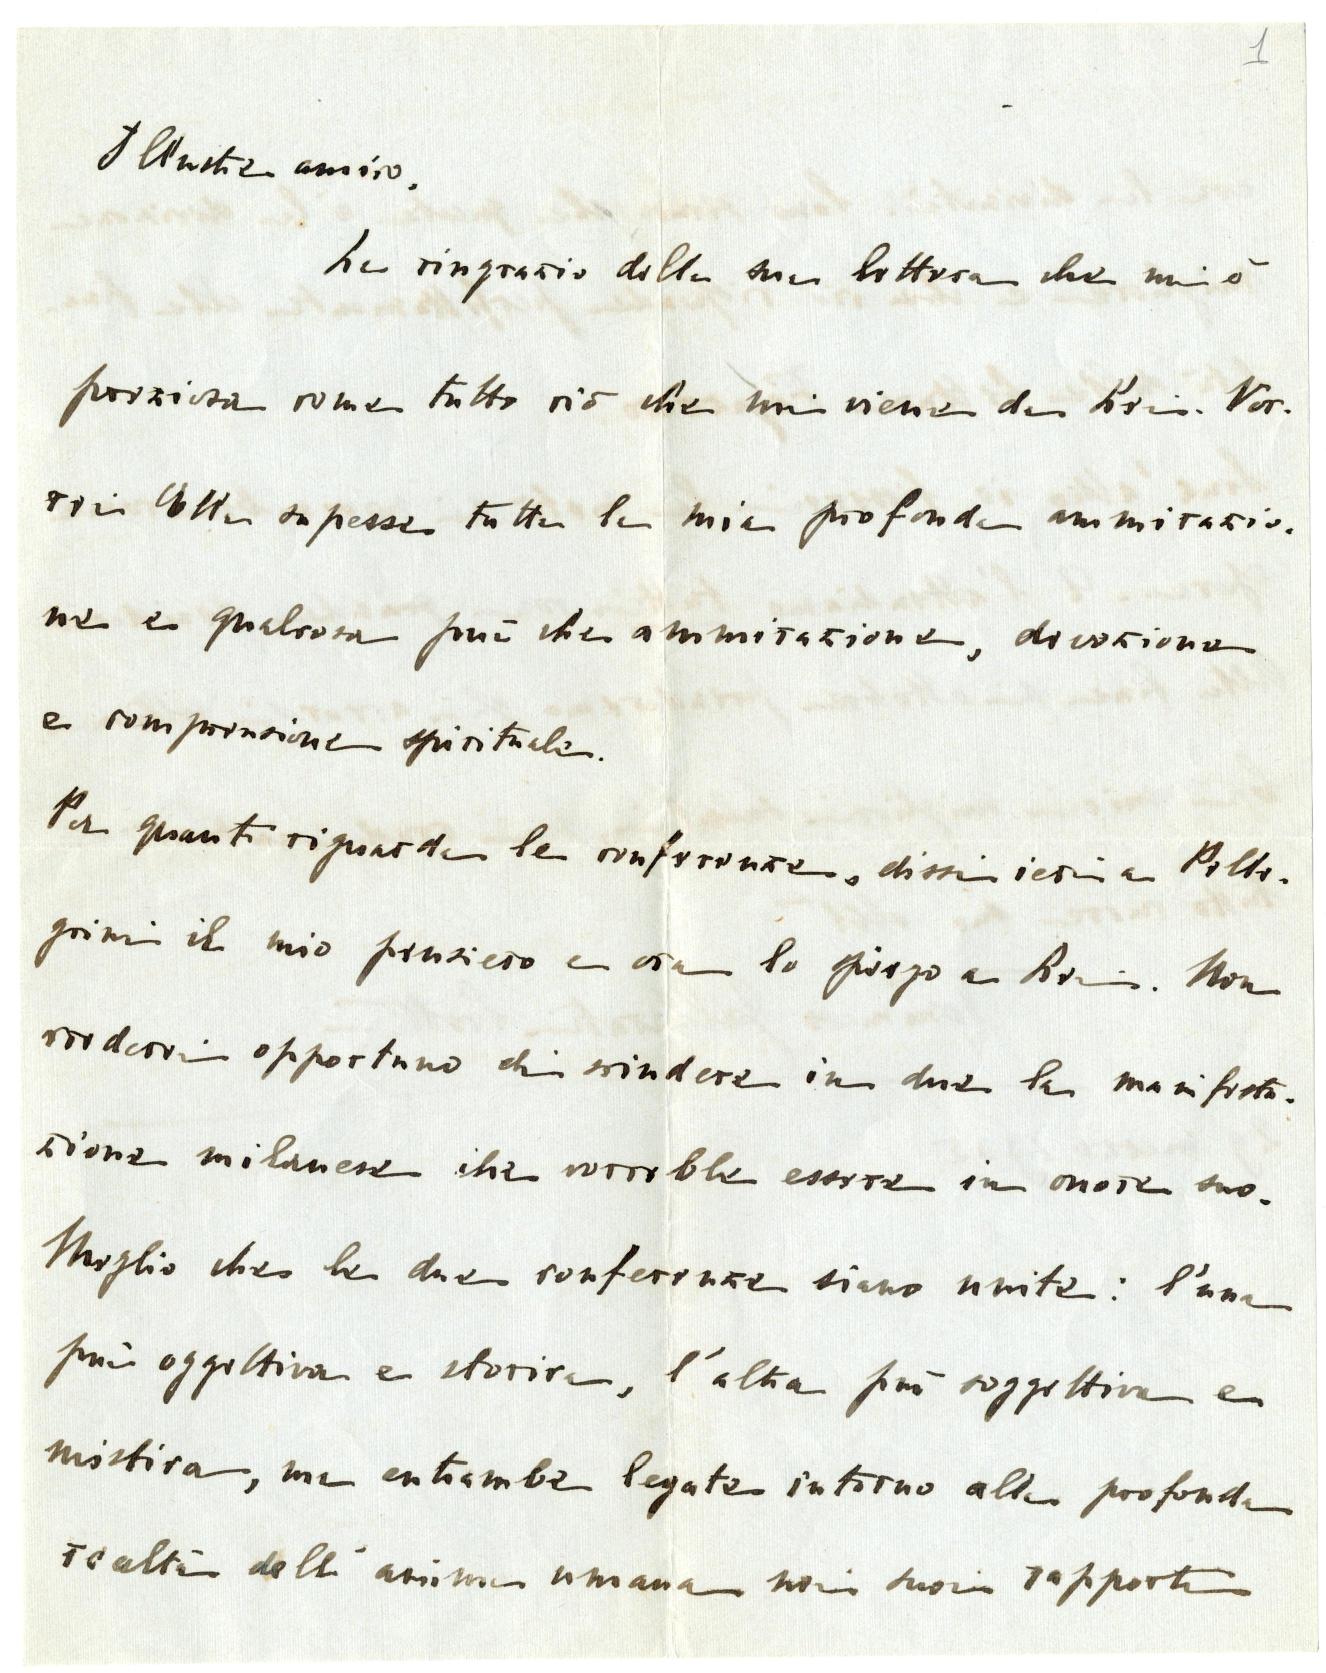 1
Illustre amico,
La ringrazio della sua lettera che mi è
preziosa come tutto ciò che mi viene da Lei. Vor-
rei Ella sapesse tutta la mia profonda ammirazio-
ne e qualcosa più che ammirazione, devozione
e comprensione spirituale.
Per quanti riguarda le conferenze, dissi ieri a Pelle-
grini il mio pensiero e ora lo spiego a Lei. Non
crederei opportuno di scindere in due la manifesta-
zione milanese che vorrebbe essere in onore suo.
Meglio che le due conferenze siano unite: l'una
più oggettiva e storica, l'altra più soggettiva e
mistica, ma entrambe legate intorno alla profonda
realtà dell'anima umana nei suoi rapporti